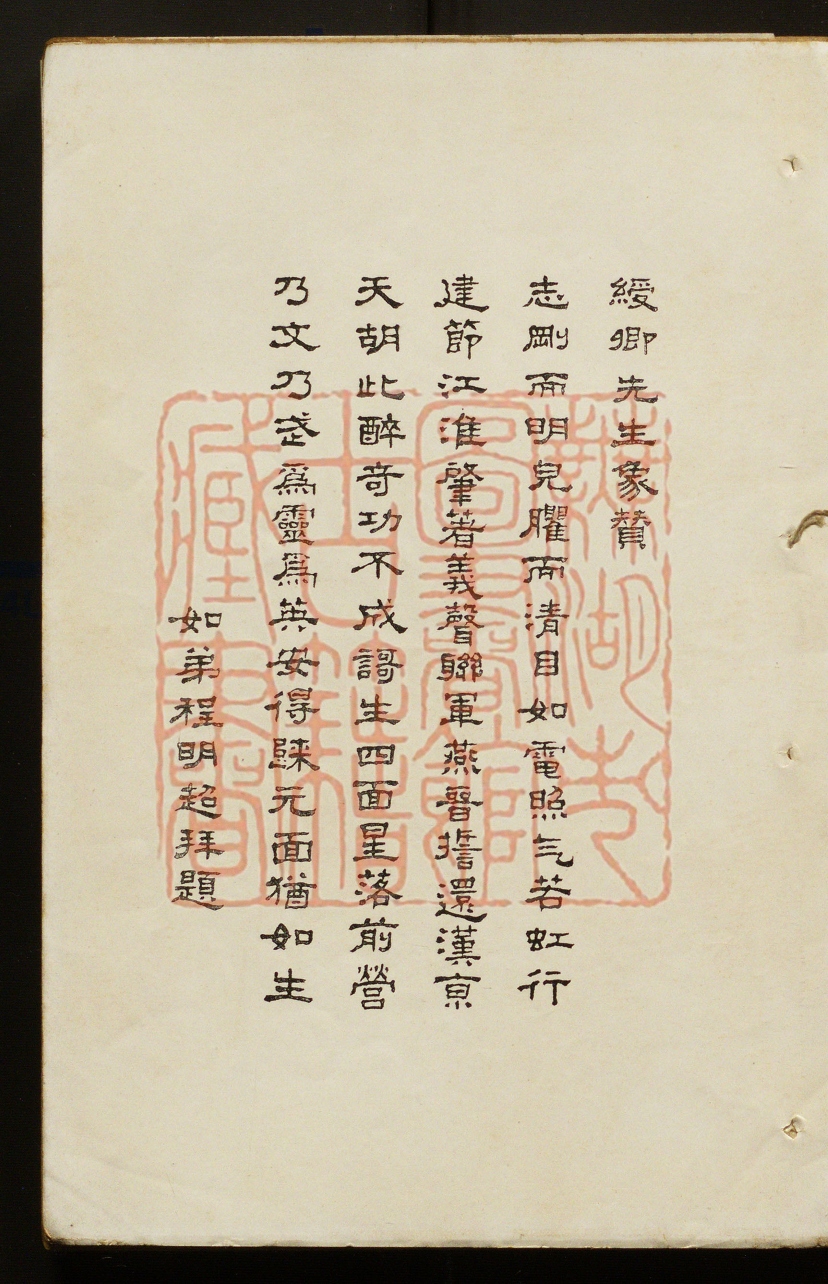 綬卿先生象贊
志剛而明皃臞而清目如電照气若虹行
建節江淮肇著義聲聯軍燕晉誓還漢京
天胡此醉奇功不成謌生四面星落前營
乃文乃武爲靈爲英安得歸元面猶如生
如弟程明超拜題